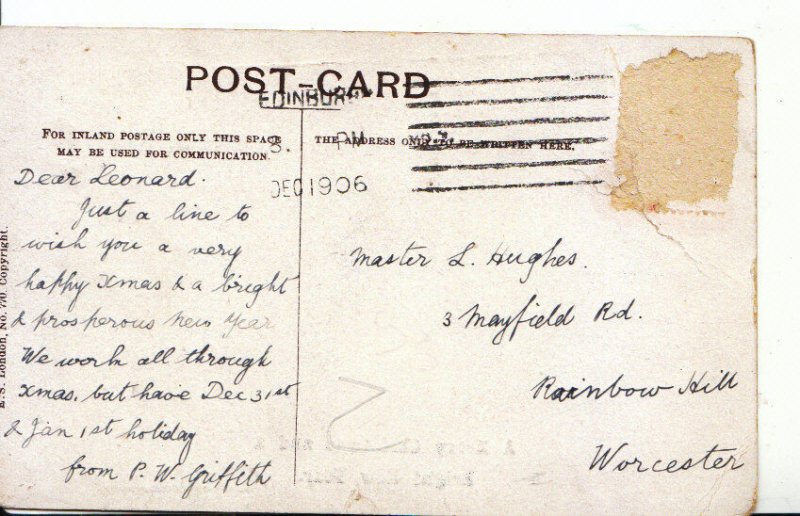 POST-CARD
EDINBURGH
FOR INLAND POSTAGE ONLY THIS SPACE
MAY BE USED FOR COMMUNICATION.
THE ADDRESS ONLY TO BE WRITTEN HERE.
PM
DEC 1906
Dear Leonard.
Just a line to
wish you a very
happy Xmas & a bright
& prosperous New Year
We work all through
Xmas. but have Dec 31st
& Jan 1st holiday
from P. W. Griffith
Master L. Hughes.
3 Mayfield Rd.
Rainbow Hill
Worcester
E.S. London, No. 770. Copyright.